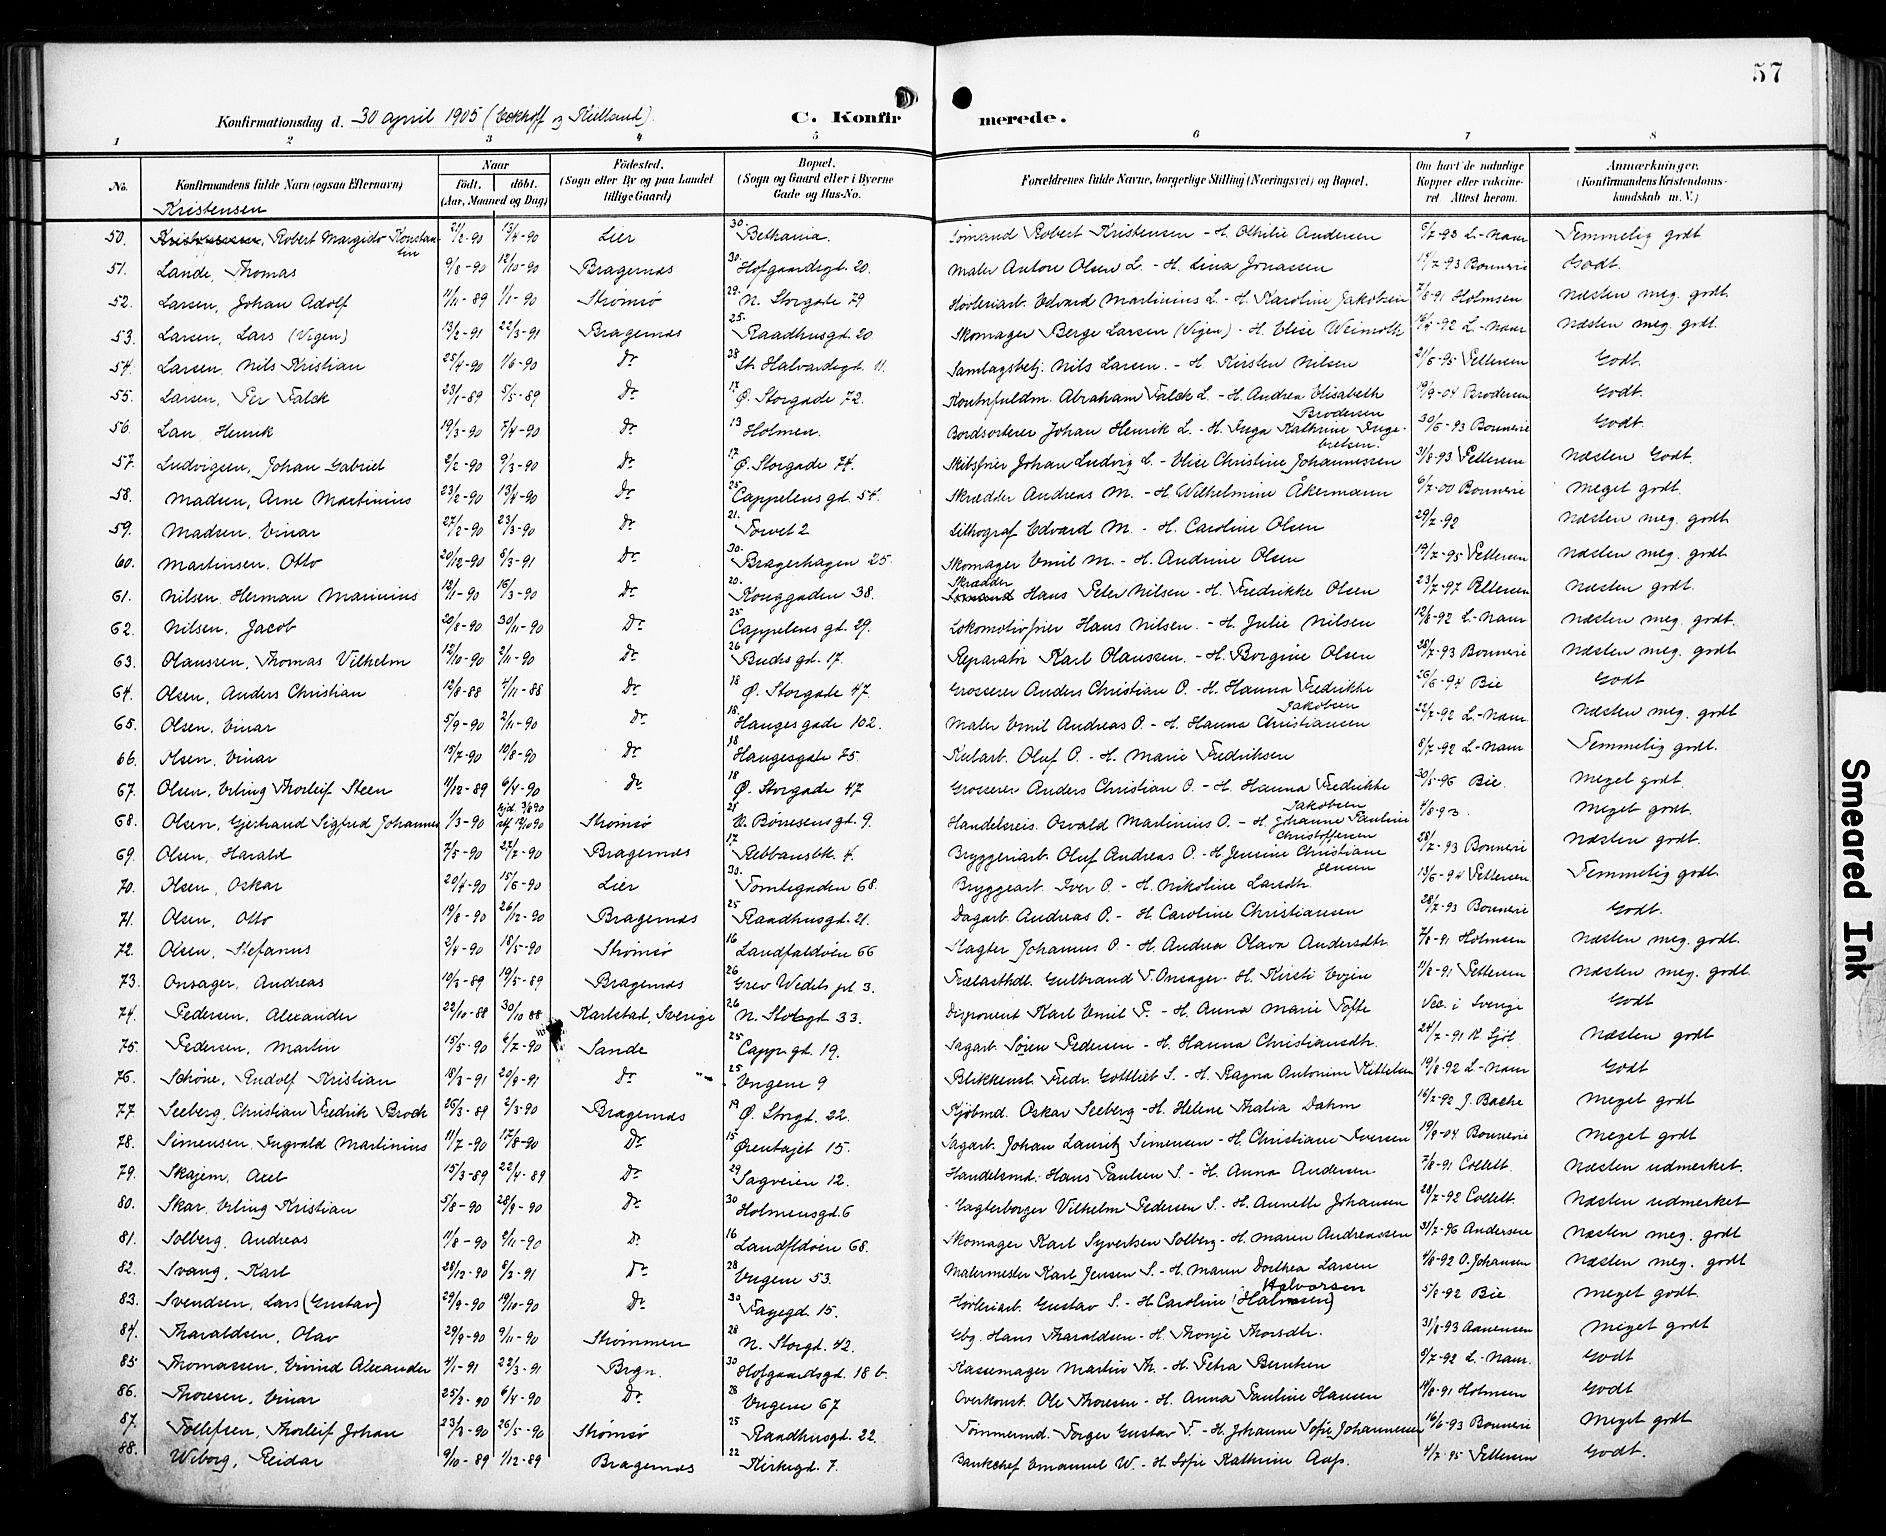 57
Konfirmationsdag d. 30 april 1905 (Eckhoff og Kielland).
C. Konfir merede.
1 2 3 4 5 6 7 8
No. Konfirmandens fulde Navn (ogsaa Efternavn) Naar født. døbt. (Aar, Maaned og Dag) Fødested. (Sogn eller By og paa Landet tillige Gaard) Bopæl. (Sogn og Gaard eller i Byerne Gade og Hus-No. Forældrenes fulde Navne, borgerlige Stilling (Næringsvei) og Bopæl. Om havt de naturlige Kopper eller vaccineret. Attest herom. Anmærkninger. (Konfirmandens Kristendomskundskab m. V.)
Kristensen
50. Robert Margido Konstantin 21/2-90 13/4-90 Lier 30. Bethania. Sømand Robert Kristensen - H. Othilie Andersen 5/7-93 L.-Næss Temmelig godt
51. Lande, Thomas 9/8-90 12/10-90 Bragernæs 30. Hofgaardsgt. 20. Maler Anton Olsen L. - H. Lina Jonassen 19/7-93 Bonnevie Godt.
52. Larsen, Johan Adolf 11/11-89 1/1-90 Strømsø 29. N. Storgade 79 Høvleriarb. Edvard Martinius L. - H. Karoline Jakobsen 7/8-91 Holmsen Næsten meg. godt
53. Larsen, Lars (Vigen) 13/2-91 22/3-91 Bragernæs 25. Raadhusgd. 20 Skomager Berge Larsen (Vigen) - H. Elise Weimoth L.-Næss Næsten meg. godt.
54. Larsen, Nils Kristian 25/4-90 1/6-90 Do 28 St. Halvardsgt. 11. Samlagsbetj. Nils Larsen. - H. Kirsten Nilsen 21/6-95 Pettersen Godt.
55. Larsen, Per Falck 23/1-89 5/5-89 Do 17 Ø. Storgade 72. Kontrfuldm. Abraham Falck L. - H. Andrea Elisabeth Brodersen 19/9-04 Brodersen Godt.
56. Lau, Henrik 19/3-90 7/4-90 Do 13 Holmen. Bordsorterer Johan Henrik L. - H. Inga Kathrine Ingebretsen 30/6-93 Bonnevie Godt.
57. Ludvigsen, Johan Gabriel 2/2-90 9/3-90 Do 17 Ø. Storgade 74. Skibsfører Johan Ludvig L. - Elise Christine Johannessen 31/8-93 Pettersen Næsten Godt.
58. Madsen, Arne Martinius 23/2-90 13/4-90 Do 25 Cappelens gd. 54. Skrædder Andreas M. - H. Wilhelmine Åkermann 6/7-00 Bonnevie Meget godt.
59. Madsen, Einar 27/2-90 23/3-90 Do 21. Torvet 2 Lithograf Edvard M. - H. Caroline Olsen 29/7-92 Næsten meg. godt
60. Martinsen, Otto 20/12-90 8/3-91 Do 30. Bragerhagen 25. Skomager Emil M. - H. Andrine Olsen 19/7-95 Pettersen Næsten meg. godt
61. Nilsen, Herman Marinius 12/1-90 16/3-90 Do 20. Konggaden 38. Skrædder Hans Peter Nilsen - H. Fredrikke Olsen 23/7-97 Pettersen Næsten godt.
62. Nilsen, Jacob 20/8-90 30/11-90 Do 25 Cappelens gd. 29. Lokomotivfører Hans Nilsen. - H. Julie Nilsen 12/8-92 L.-Næss Næsten meg. godt.
63. Olaussen, Thomas Vilhelm 12/10-90 2/11-90 Do 26 Buchs gd. 17. Reparatør Karl Olaussen. - H. Borgine Olsen 28/7-93 Bonnevie Næsten meg. godt
64. Olsen, Anders Christian 12/8-88 4/11-88 Do 18 Ø. Storgade 47 Grosserer Anders Christian O. - H. Hanna Fredrikke Jakobsen 26/6-94 Bie Godt
65. Olsen, Einar 5/9-90 2/11-90 Do 18. Hauges gade 102. Maler Emil Andreas O. - H. Hanna Christiansen 22/7-92 L.-Næss. Næsten meg. godt
66. Olsen, Einar 15/7-90 10/8-90 Do 18 Haugesgade 75. Kularb. Oluf O. - H. Marie Fredriksen 8/7-92 L-Næss Temmelig godt.
67. Olsen, Erling Thorleif Steen 11/12-89 6/4-90 Do 18 Ø. Storgade 47 Grosserer Anders Christian O. - H. Hanna Fredrikke Jakobsen 30/5-96 Bie. Meget godt.
68. Olsen, Gerhard Sigfred Johannes 1/3-90 Strømsø 21 V. Børresens gt. 9. Handelsreis. Osvald Martinius O. - H. Johanne Pauline Christoffersen 4/8-93 Meget godt.
69. Olsen, Harald 7/5-90 27/7-90 Bragernæs 17 Rebbansbk. 4. Bryggeriarb. Oluf Andreas O. - H. Jensine Christiane Jensen 28/7-93 Bonnevie Næsten godt.
70. Olsen, Oskar 20/4-90 15/6-90 Lier 30. Tomtegaden 68. Bryggearb. Iver O. - H. Nikoline Larsdtr. 13/6-94 Pettersen Temmelig godt
71. Olsen, Otto 19/8-90 26/12-90 Bragernæs 25 Raadhusgd. 21. Dagarb. Andreas O. - H. Caroline Christiansen 28/7-93 Bonnevie Godt.
72. Olsen, Stefanus 2/4-90 18/5-90 Strømsø 16 Landfaldøen 66 Slagter Johannes O. - H. Andrea Olava Andersdtr. 7/8-91 Holmsen Næsten meg. godt.
73. Onsager, Andreas 10/3-89 19/5-89 Bragernæs 26 Grev Wedels pl. 3. Trælasthdl. Gulbrand T. Onsager - H. Kirsti Evjen 11/8-91 Pettersen Næsten meg. godt
74. Pedersen, Alexander 22/10-88 30/10 88 Karlstad, Sverige 26 N. Storgd. 33. Disponent Karl Emil P. - H. Anna Marie Tofte Vac. i Sverige Godt
75. Pedersen, Martin 15/5-90 6/7-90 Sande 25 Capp. gt. 19. Sagarb. Søren Pedersen - H. Hanna Christiansdtr. 24/7-91 Næsten godt
76. Schøne, Rudolf Kristian 18/3-91 20/9-91 Do 25 Engene 9 Blikkensl. Fredr. Gottlieb S. - H. Ragna Antonine Kittelsen 19/8-92 L-Næss Godt
77 Seeberg, Christian Fredrik Brock 26/3-89 2/3-90 Bragernæs 19 Ø. Storgt. 22. Kjøbmd. Oskar Seeberg - H. Helene Thalia Dahm J. Bache Meget godt
78. Simensen, Ingvald Martinius 11/7-90 17/8-90 Do 15 Ørentajet 15. Sagarb. Johan Lauritz Simensen - H. Christiane Iversen 19/9-04 Bonnevie Meget godt
79. Skajem, Axel 15/3-89 22/4-89 Do 29 Sagveien 12. Handelsmd. Hans Paulsen S. - H. Anna Andersen 7/8-91 Collett. Næsten udmerket.
80. Skar, Erling Kristian 5/8-90 28/9-90 Do 30 Holmensgd. 6 Slagterborger Vilhelm Pedersen S. - H. Annette Johansen 22/7-92 Collett. Næsten udmerket
81. Solberg, Andreas 11/8-90 9/11-90 Do 16 Landfldøen 68. Skomager Karl Syvertsen Solberg - H. Maren Andreassen 31/7-96 Andersen Næsten meg. godt
82. Svang, Karl 28/12-90 8/2-91 Do 28 Engene 53. Malermester Karl Jensen S. - H. Maren Dorthea Larsen 4/8-92 O. Johansen Næsten meg. godt
83. Svendsen, Lars (Gustav) 29/9-90 19/10-90 Do 30 Fayegd. 15. Høvleriarb. Gustav S. - H. Caroline Halvorsen 5/8-92 Bie Meget godt.
84. Tharaldsen, Olav 29/9-90 9/11-90 Strømmen 28 N. Storgd. 42. Gbg. Hans Tharaldsen - H. Thonje Thorsdtr. 31/8-93 Aanensen Meget godt
85. Thomassen, Eivind Alexander 4/1-91 22/3-91 Brgn. 30 Hofgaardsgd. 18 b. Kassemager Martin Th. - H. Petra Berntsen 8/7-92 L-Næss. Godt
86. Thoresen, Einar 25/2-90 6/4-90 Do 28 Engene 67 Overkonst. Ole Thoresen - H. Anna Pauline Hansen 14/8-91 Holmsen Godt
87. Tollefsen, Thorleif Johan 23/3-90 26/5-90 Strømsø 25 Raadhusgd. 22. Tømmermd. Torger Gustav T. - H. Johanne Sofie Johannesen 16/6-93 Bonnevie Meget godt
88. Wiborg, Reidar 9/10-89 1/12-89 Bragernæs 22 Kirkegd. 7. Bankchef Emanuel W. - H. Sofie Kathrine Aas. 4/7-95 Pettersen Godt.
Smeared Ink